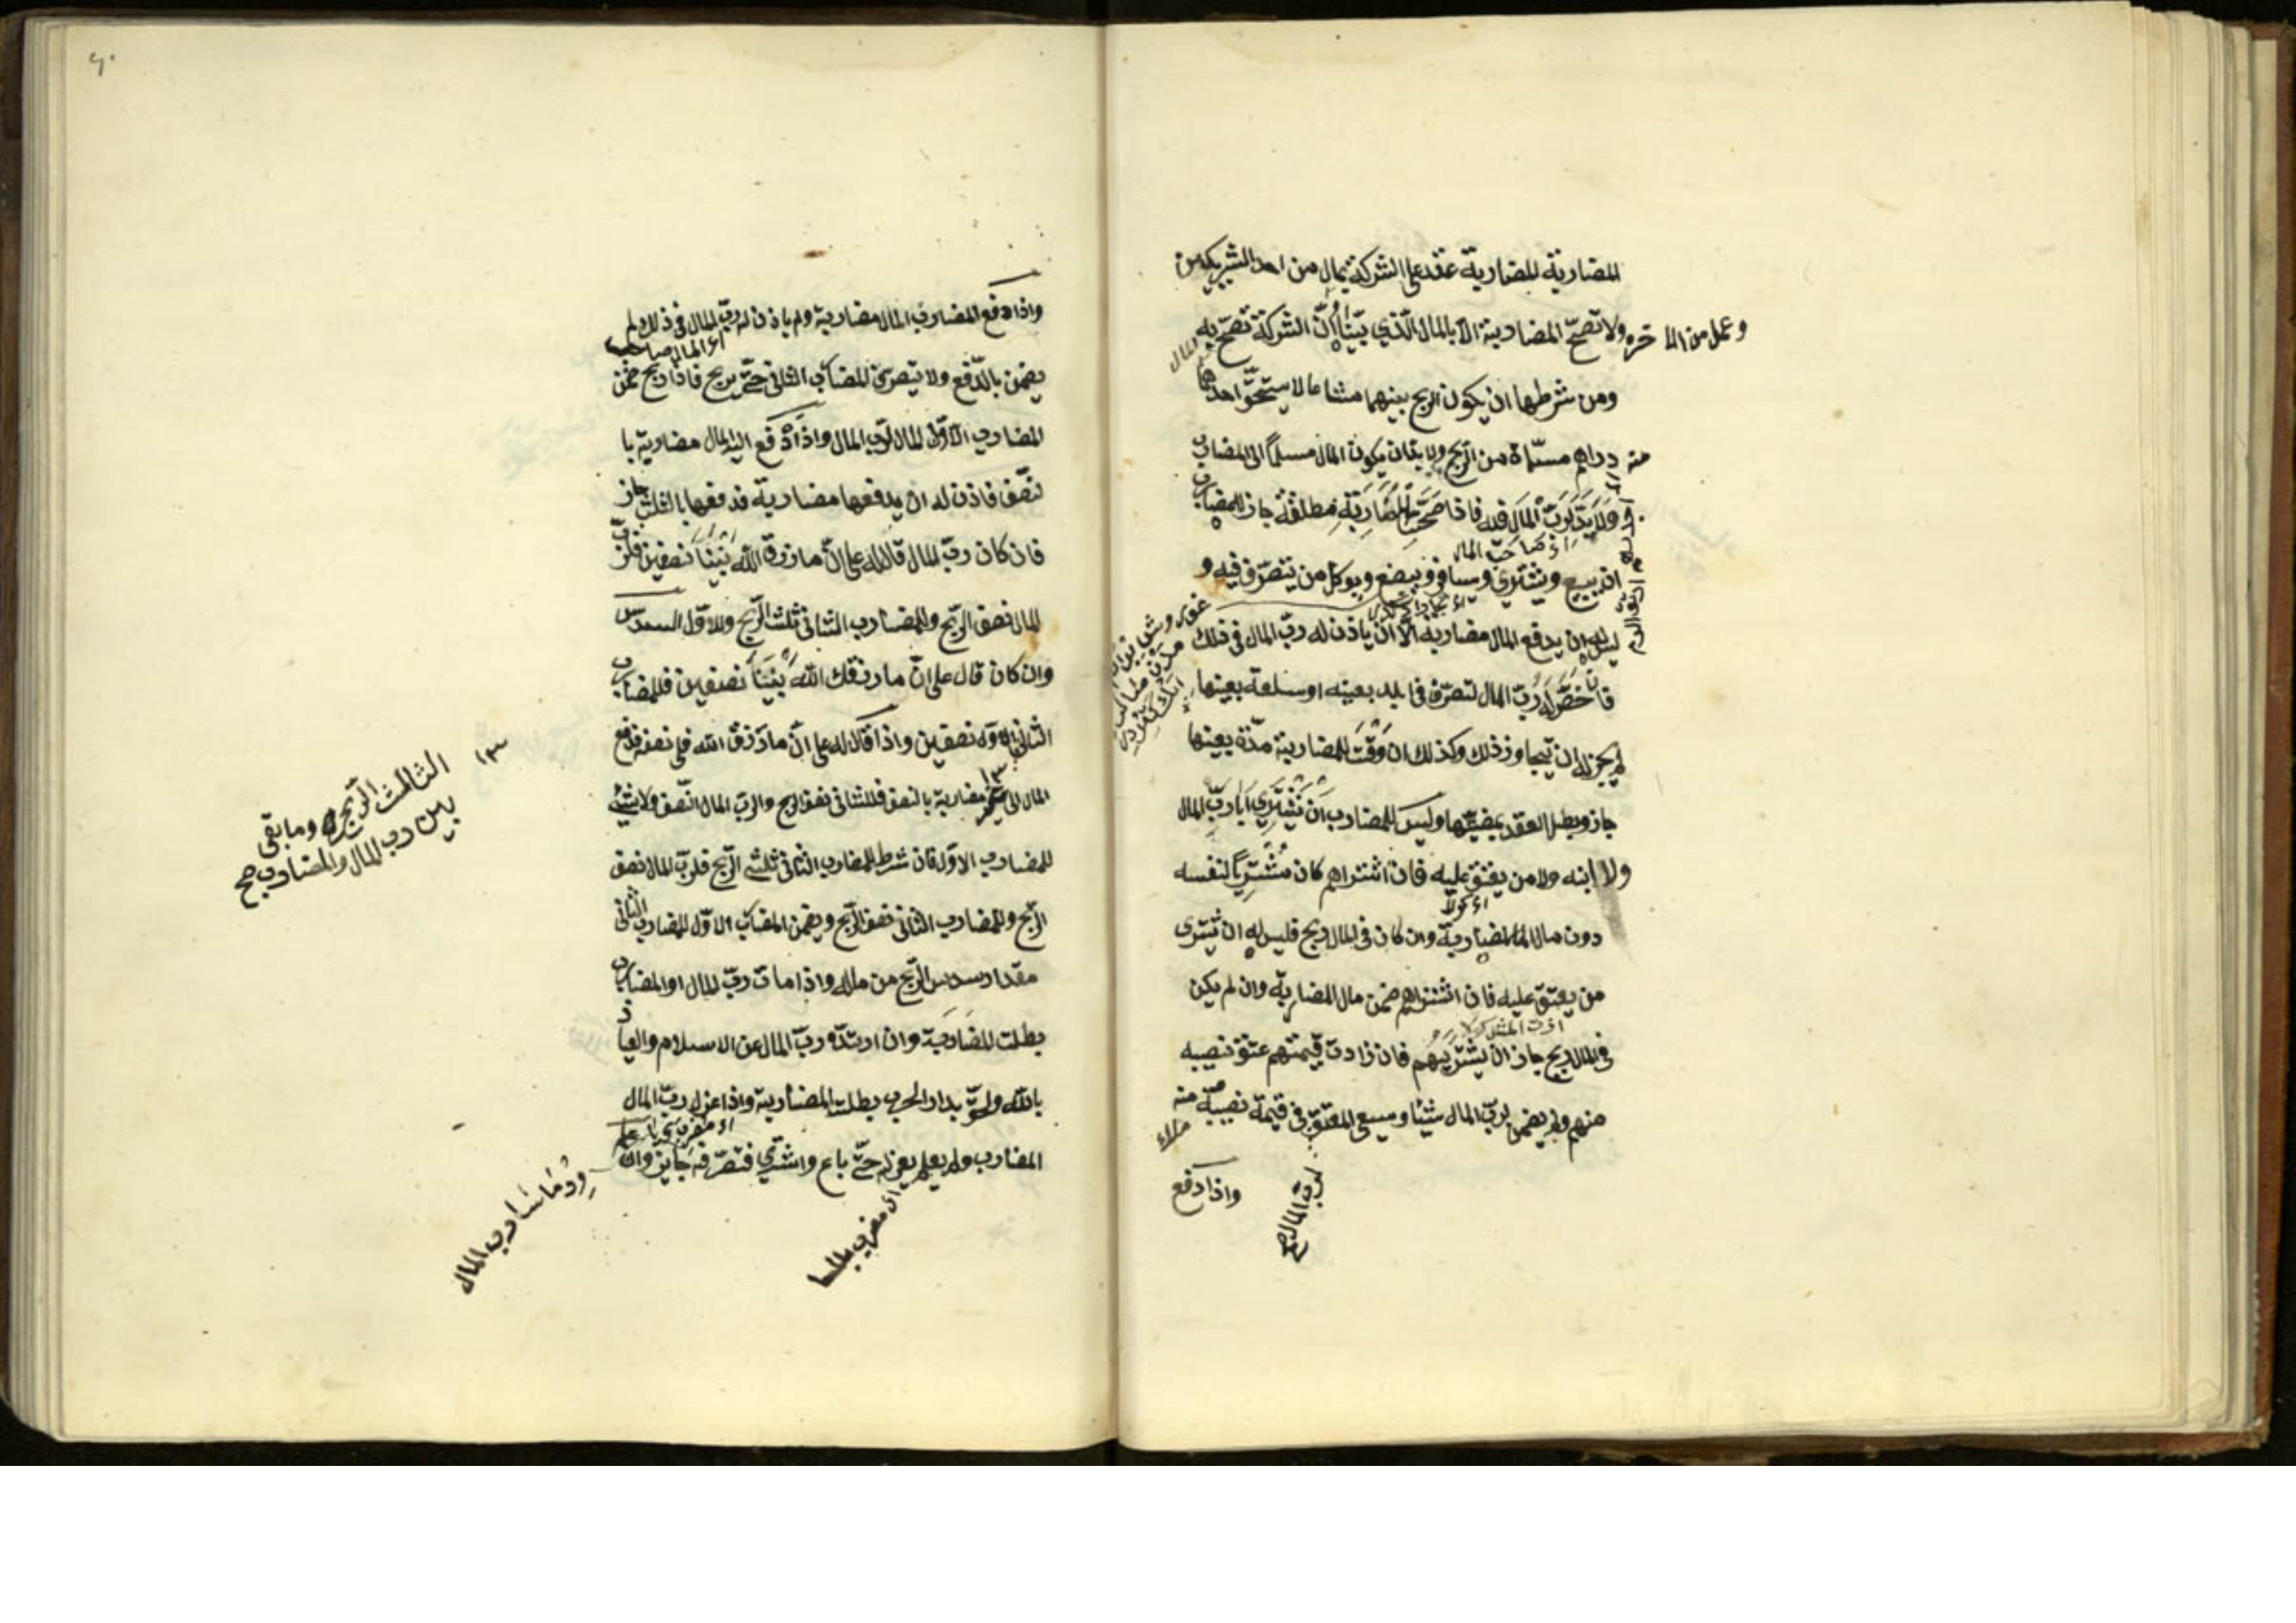 المضاربة المضاربة عقد على الشركة بمال من احد الشريكين
وعمل من الاخر ولا تصحّ المضاربة الّا بالمال الّذي بيّنّا انّ الشركة تصحّ به
ومن شرطها ان يكون الربح بينهما مشاعا لا يستحقّ احدهما
منه دراهم مسمّاة من الرّبح ولا بدّ ان يكون المال مسلّما الى المضارب
ولا يد لربّ المال فيه فاذا صحّت المضاربة مطلقة جاز للمضارب
اى صاحب المال
ان يبيع ويشتري ويسافر ويبضع ويوكل من يتصرّف فيه و
ليس له ان يدفع المال مضاربة الّا ان ياذن له ربّ المال فى ذلك
فان خصّ له ربّ المال لتصرّف فى بلد بعينه او سلعة بعينها
لم يجز له ان يتجاوز ذلك وكذلك ان وقّت للمضاربة مدّة بعينها
جاز وبطل العقد بمضيّها وليس للمضارب ان يشتري ابا ربّ المال
ولا ابنه ولا من يعتق عليه فان اشتراهم كان مشتريا لنفسه
دون مال المضاربة وان كان فى المال ربح فليس له ان يشترى
من يعتق عليه فان اشتراهم ضمن مال المضاربة وان لم يكن
فى المال ربح جاز ان يشتريهم فان زادت قيمتهم عتق نصيبه
منهم ولم يضمن لربّ المال شيئا ويسعى المعتق فى قيمة نصيبه منه
لربّ المال صح
واذا دفع
٦٠
واذا دفع المضارب المال مضاربة ولم ياذن له ربّ المال فى ذلك لم
يضمن بالدّفع ولا يتصرف المضارب الثانى حتّى يربح فاذا ربح ضمن
المضارب الاوّل المال لربّ المال واذا دفع اليه المال مضاربة با
لنصف فاذن له ان يدفعها مضاربة فدفعها بالثلث جاز
فان كان ربّ المال قال له على انّ ما رزق اللّه بيننا نصفين فلربّ
المال نصف الرّبح وللمضارب الثانى ثلث الرّبح وللاوّل السدس
وان كان قال على انّ ما رزقك اللّه بيننا نصفين فللمضارب
الثانى
١٣
الثالث الرّبح وما بقى
بين ربّ المال والمضارب صح
الاوّل نصفين واذا قال له على انّ ما رزق اللّه فلى نصفه فدفع
المال الى اخر مضاربة بالنصف فللثانى نصف الربح ولربّ المال النّصف ولا شئ
للمضارب الاوّل فان شرط للمضارب الثانى ثلثى الرّبح فلربّ المال نصف
الرّبح وللمضارب الثانى نصف الرّبح ويضمن المضارب الاوّل للمضارب الثانى
مقدار سدس الرّبح من ماله واذا مات ربّ المال او المضارب
بطلت المضاربة وان ارتدّ ربّ المال عن الاسلام والعياذ
باللّه ولحق بدار الحرب بطلت المضاربة واذا عزل ربّ المال
المضارب ولم يعلم بعزله حتّى باع واشترى فتصرّفه جايز وان